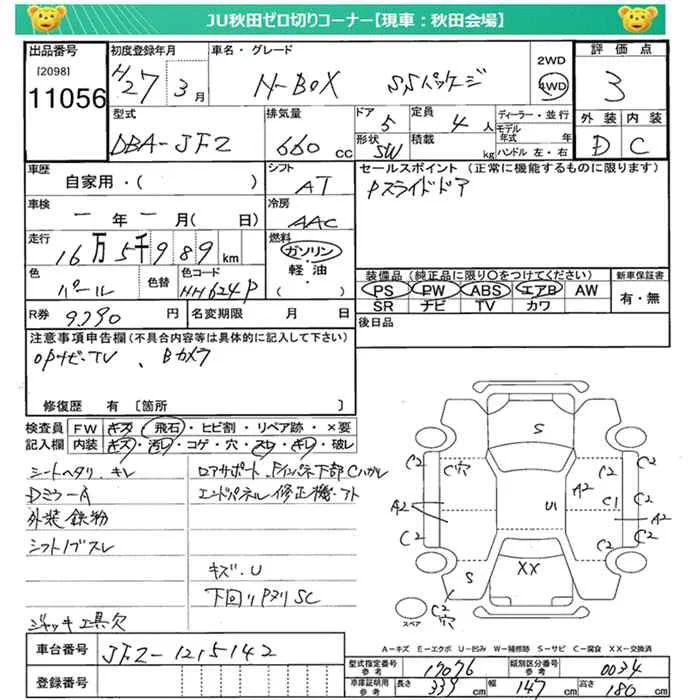 JU秋田ゼロ切りコーナー【現車：秋田会場】
出品番号 初度登録年月 車名・グレード 2WD 評価点
[2098] H27 3月 N-BOX SSパッケージ 4WD 3
11056
型式 排気量 ドア 定員 ディーラー・並行 外装 内装
DBA-JF2 660cc 5 4人 モデル年式 年 D C
形状 SW 積載 kg ハンドル 左・右
車歴 シフト セールスポイント（正常に機能するものに限ります）
自家用・( ) AT Pスライドドア
車検 冷房
ー年ー月(日) AAC
走行 燃料
16万5千989km ガソリン
軽油・ 装備品（純正品に限り○をつけてください） 新車保証書
色 色替 色コード ( ) PS PW ABS エアB AW 有・無
パール NH624P SR ナビ TV カワ
R券 9390円 名変期限 月 日 後日品
注意事項申告欄（不具合内容等は具体的に記入して下さい）
OPナビ・TV、Bカメラ
修復歴 有 [箇所 ]
検査員 FW キズ・飛石・ヒビ割・リペア跡・×要
記入欄 内装 キズ・汚レ・コゲ・穴・スレ・キレ・破レ
シートヘタリ、キレ
ロアサポート、Fインパネ下部Cハガレ
Dミラー A
エンドパネル修正機・アト
外装鉄粉
シフトノブスレ
キズ・U
下回りPヌリSC
ジャッキ工具欠
S
C2 C穴 A2 C2
A2 U1 C1 A2
C2 C2
S XX C2
C2 穴
スペア
A－キズ E－エクボ U－凹み W－補修跡 S－サビ C－腐食 XX－交換済
車台番号 JF2-1215142 型式指定番号 参考 17076 類別区分番号 参考 0034
登録番号 車庫証明用 参考 長さ 339cm 幅 147cm 高さ 180cm